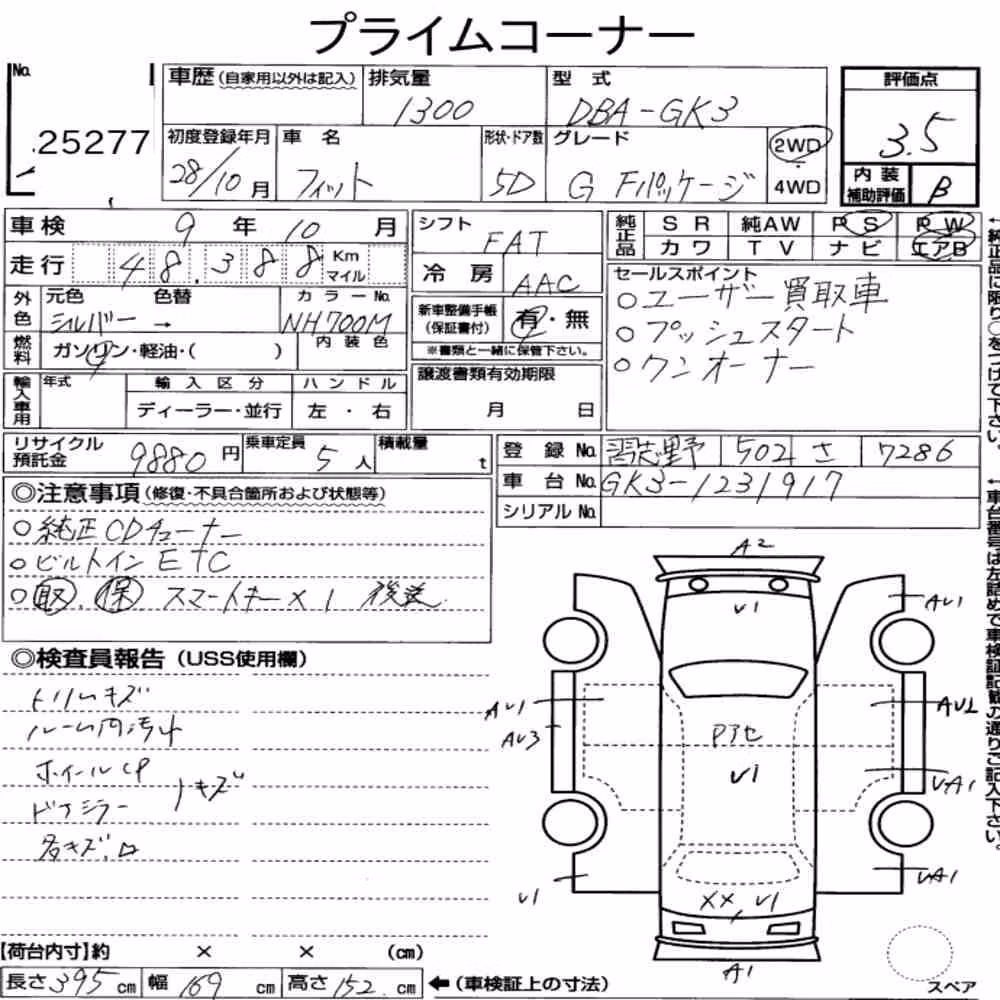 プライムコーナー
No.
25277
車歴 (自家用以外は記入)
排気量
1300
型式
DBA-GK3
評価点
3.5
初度登録年月
28/10月
車名
フィット
形状・ドア数
5D
グレード
G Fパッケージ
2WD
・
4WD
内装
補助評価
B
車検 9年10月
走行 48,388 Km
マイル
シフト
FAT
冷房 AAC
純正品
SR 純AW PS PW
カワ TV ナビ エアB
外色
元色 色替 カラーNo.
シルバー → NH700M
燃料
ガソリン・軽油・( )
内装色
新車整備手帳
(保証書付)
有・無
※書類と一緒に保管下さい。
セールスポイント
○ユーザー買取車
○プッシュスタート
○ワンオーナー
輸入車用
年式
輸入区分
ハンドル
ディーラー・並行
左・右
譲渡書類有効期限
月 日
リサイクル
預託金
9880円
乗車定員
5人
積載量
t
登録No. 習志野 502 さ 7286
車台No. GK3-1231917
シリアルNo.
◎注意事項 (修復・不具合箇所および状態等)
○純正CDチューナー
○ビルトインETC
○取.保 スマートキー×1 後送
◎検査員報告 (USS使用欄)
トリムキズ
ルーム内汚れ
ホイールCP
ドアミラー
キズ
A2
V1
AU1
AU1
AU3
Pアセ
V1
VA1
V1
XX,V1
VA1
A1
スペア
【荷台内寸】約 × × (cm)
長さ395cm 幅169cm 高さ152cm ←(車検証上の寸法)
←純正品に限り○をつけて下さい。
←車台番号は左詰めで車検証記載の通りご記入下さい。